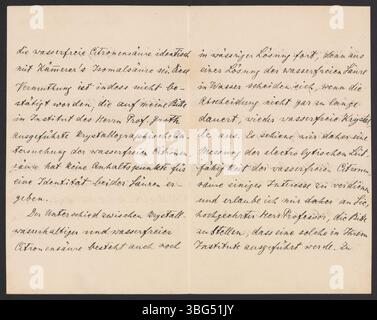 die wasserfreie Citronensäure identisch
mit Kämerer's Isomalsäure sei. Diese
Vermuthung ist indess nicht be-
stätigt worden, die auf meine Bitte
im Institut des Herrn Prof. Groth
ausgeführte krystallographische Un-
tersuchung der wasserfreien Citronen-
säure hat keine Anhaltspunkte für
eine Identität beider Säuren er-
geben.
Der Unterschied zwischen krystall-
wasserhaltiger und wasserfreier
Citronensäure besteht auch noch
in wässriger Lösung fort, denn aus
einer Lösung der wasserfreien Säure
in Wasser scheiden sich, wenn die
Abscheidung nicht gar zu lange
dauert, wieder wasserfreie Krystalle
aus. Es schiene mir daher eine
Messung der electrolytischen Leit-
fähigkeit der wasserfreien Citronen-
säure einiges Interesse zu verdienen
und erlaube ich mir daher an Sie,
hochgeehrter Herr Professor, die Bitte
zu stellen, dass eine solche in Ihrem
Institute ausgeführt werde. Zu
alamy
Image ID: 3BG51JY
www.alamy.com